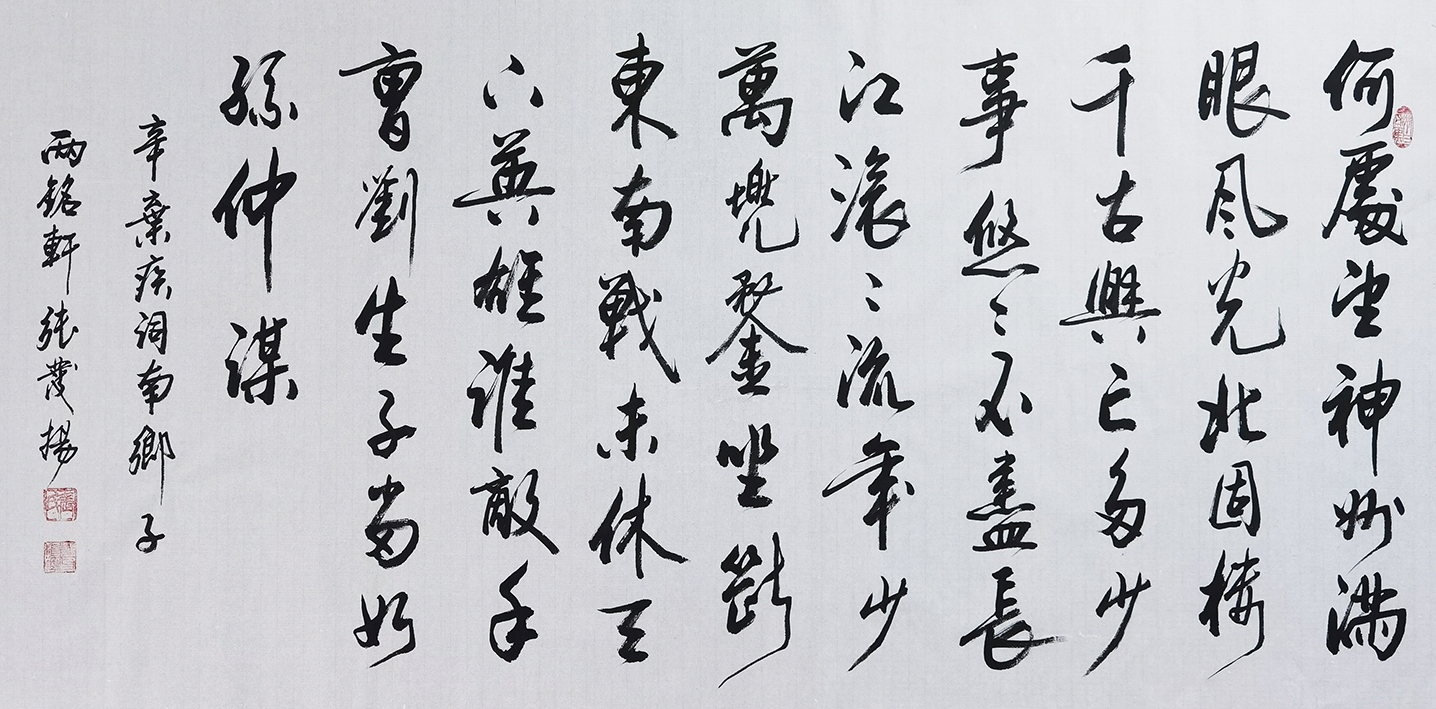 何處望神州滿
眼风光北固樓
千古興亡多少
事悠〻不盡長
江滾〻流年少
萬兜鍪坐斷
東南戰未休天
下英雄誰敵手
曹劉生子當如
孫仲謀
辛棄疾词南鄉子
两銘軒張揚